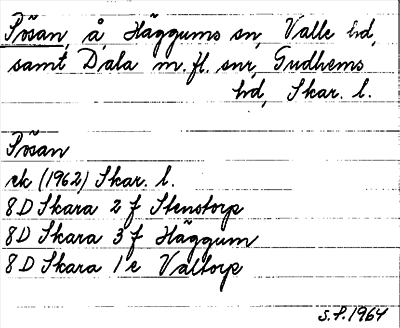 Pösan, å, Häggums sn, Valle hd,
samt Dala m. fl. snr, Gudhems
hd, Skar. l.
Pösan
ek (1962) Skar. l.
8D Skara 2 f Stenstorp
8D Skara 3 f Häggum
8D Skara 1 e Valtorp
S.F. 1964